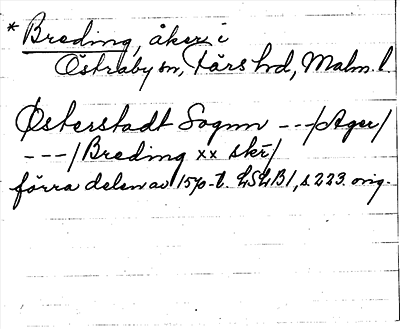 * Breding, åker i
Östraby sn, Färs hd, Malm. l.
Østerstadt Sognn ---/Ager/
---/Breding xx skr/
förra delen av 1570-t. LSLB1, s. 223. orig.